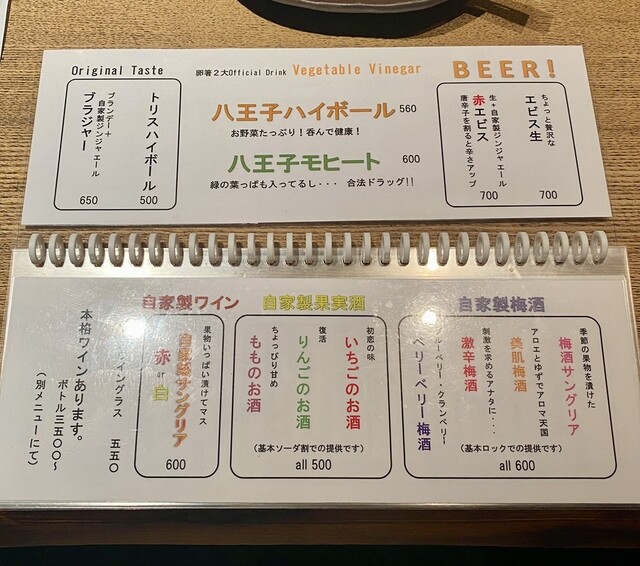 Original Taste
トリスハイボール
500
ブランデー+
自家製ジンジャエール
ブラジャー
650
卵箸2大Official Drink Vegetable Vinegar
八王子ハイボール 560
お野菜たっぷり!呑んで健康!
八王子モヒート 600
緑の葉っぱも入ってるし・・・ 合法ドラッグ!!
BEER!
ちょっと贅沢な
エビス生
700
生+自家製ジンジャエール
赤エビス
唐辛子を割ると辛さアップ
700
自家製梅酒
季節の果物を漬けた
梅酒サングリア
アロエとゆずでアロマ天国
美肌梅酒
刺激を求めるアナタに・・・
激辛梅酒
ブルーベリー・クランベリー
ベリーベリー梅酒
(基本ロックでの提供です)
all 600
自家製果実酒
初恋の味
いちごのお酒
復活
りんごのお酒
ちょっぴり甘め
もものお酒
(基本ソーダ割での提供です)
all 500
自家製ワイン
果物いっぱい漬けてマス
自家製サングリア
赤 or 白
600
イングラス 五五〇
本格ワインあります。
ボトル三五〇〇~
(別メニューにて)